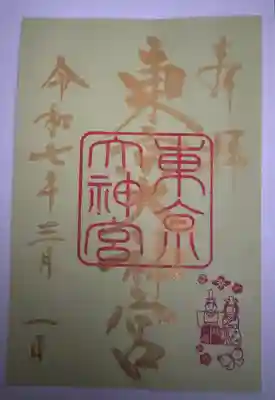 奉拝
東京大神宮
東京大神宮
令和七年三月一日